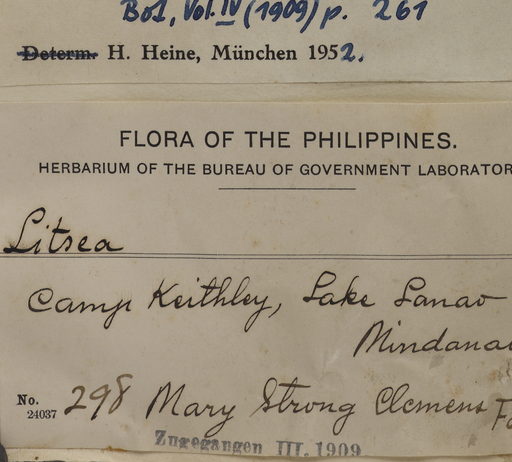 Bot, Vol. IV (1909) p. 261
Determ. H. Heine, München 1952.
FLORA OF THE PHILIPPINES.
HERBARIUM OF THE BUREAU OF GOVERNMENT LABORATOR
Litsea
Camp Keithley, Lake Lanao
Mindanao
No. 298 Mary Strong Clemens
24037
Zugegangen III. 1909